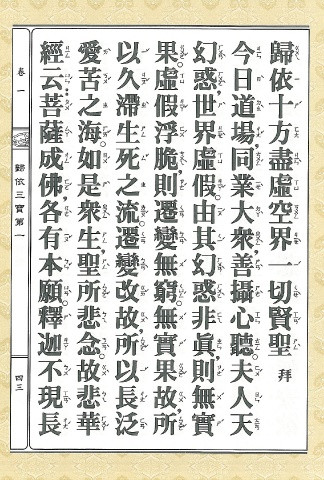 歸依十方盡虛空界一切賢聖 拜
今日道場,同業大衆,善攝心聽。夫人天
幻惑,世界虛假。由其幻惑非眞,則無實
果。虛假浮脆,則遷變無窮。無實果故,所
以久滯生死之流。遷變改故,所以長泛
愛苦之海。如是衆生,聖所悲念。故悲華
經云:菩薩成佛,各有本願。釋迦不現長
卷一
歸依三寶第一
四三